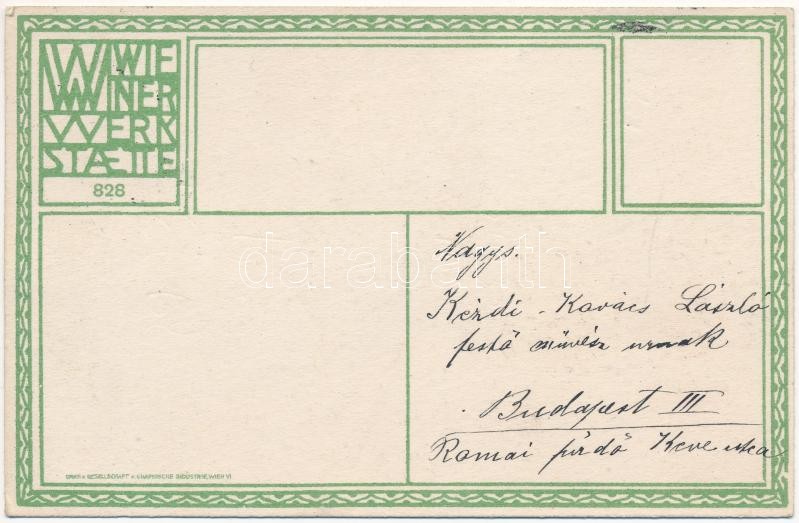 WIE
NER
WERK
STÆTTE
828
Nagys.
Kézdi-Kovács László
festő művész urnak
Budapest III
Romai fürdő Keve utca
DRUCK V. GESELLSCHAFT F. GRAPHISCHE INDUSTRIE, WIEN VI
darabanth